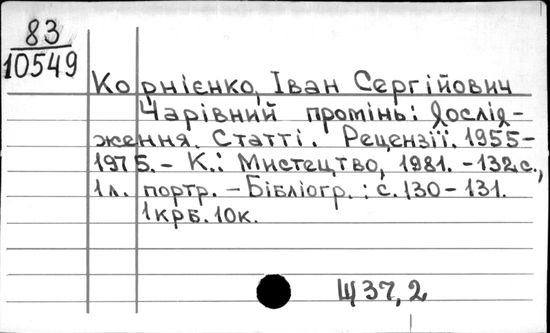 83
10549
Корнієнко, Іван Сергійович
Чарівний промінь: Дослід-
ження. Статті. Рецензії. 1955-
1975. - К.: Мистецтво, 1981. - 132с.,
1л. портр. - Бібліогр.: с. 130 - 131.
1крб. 10к.
Щ37,2